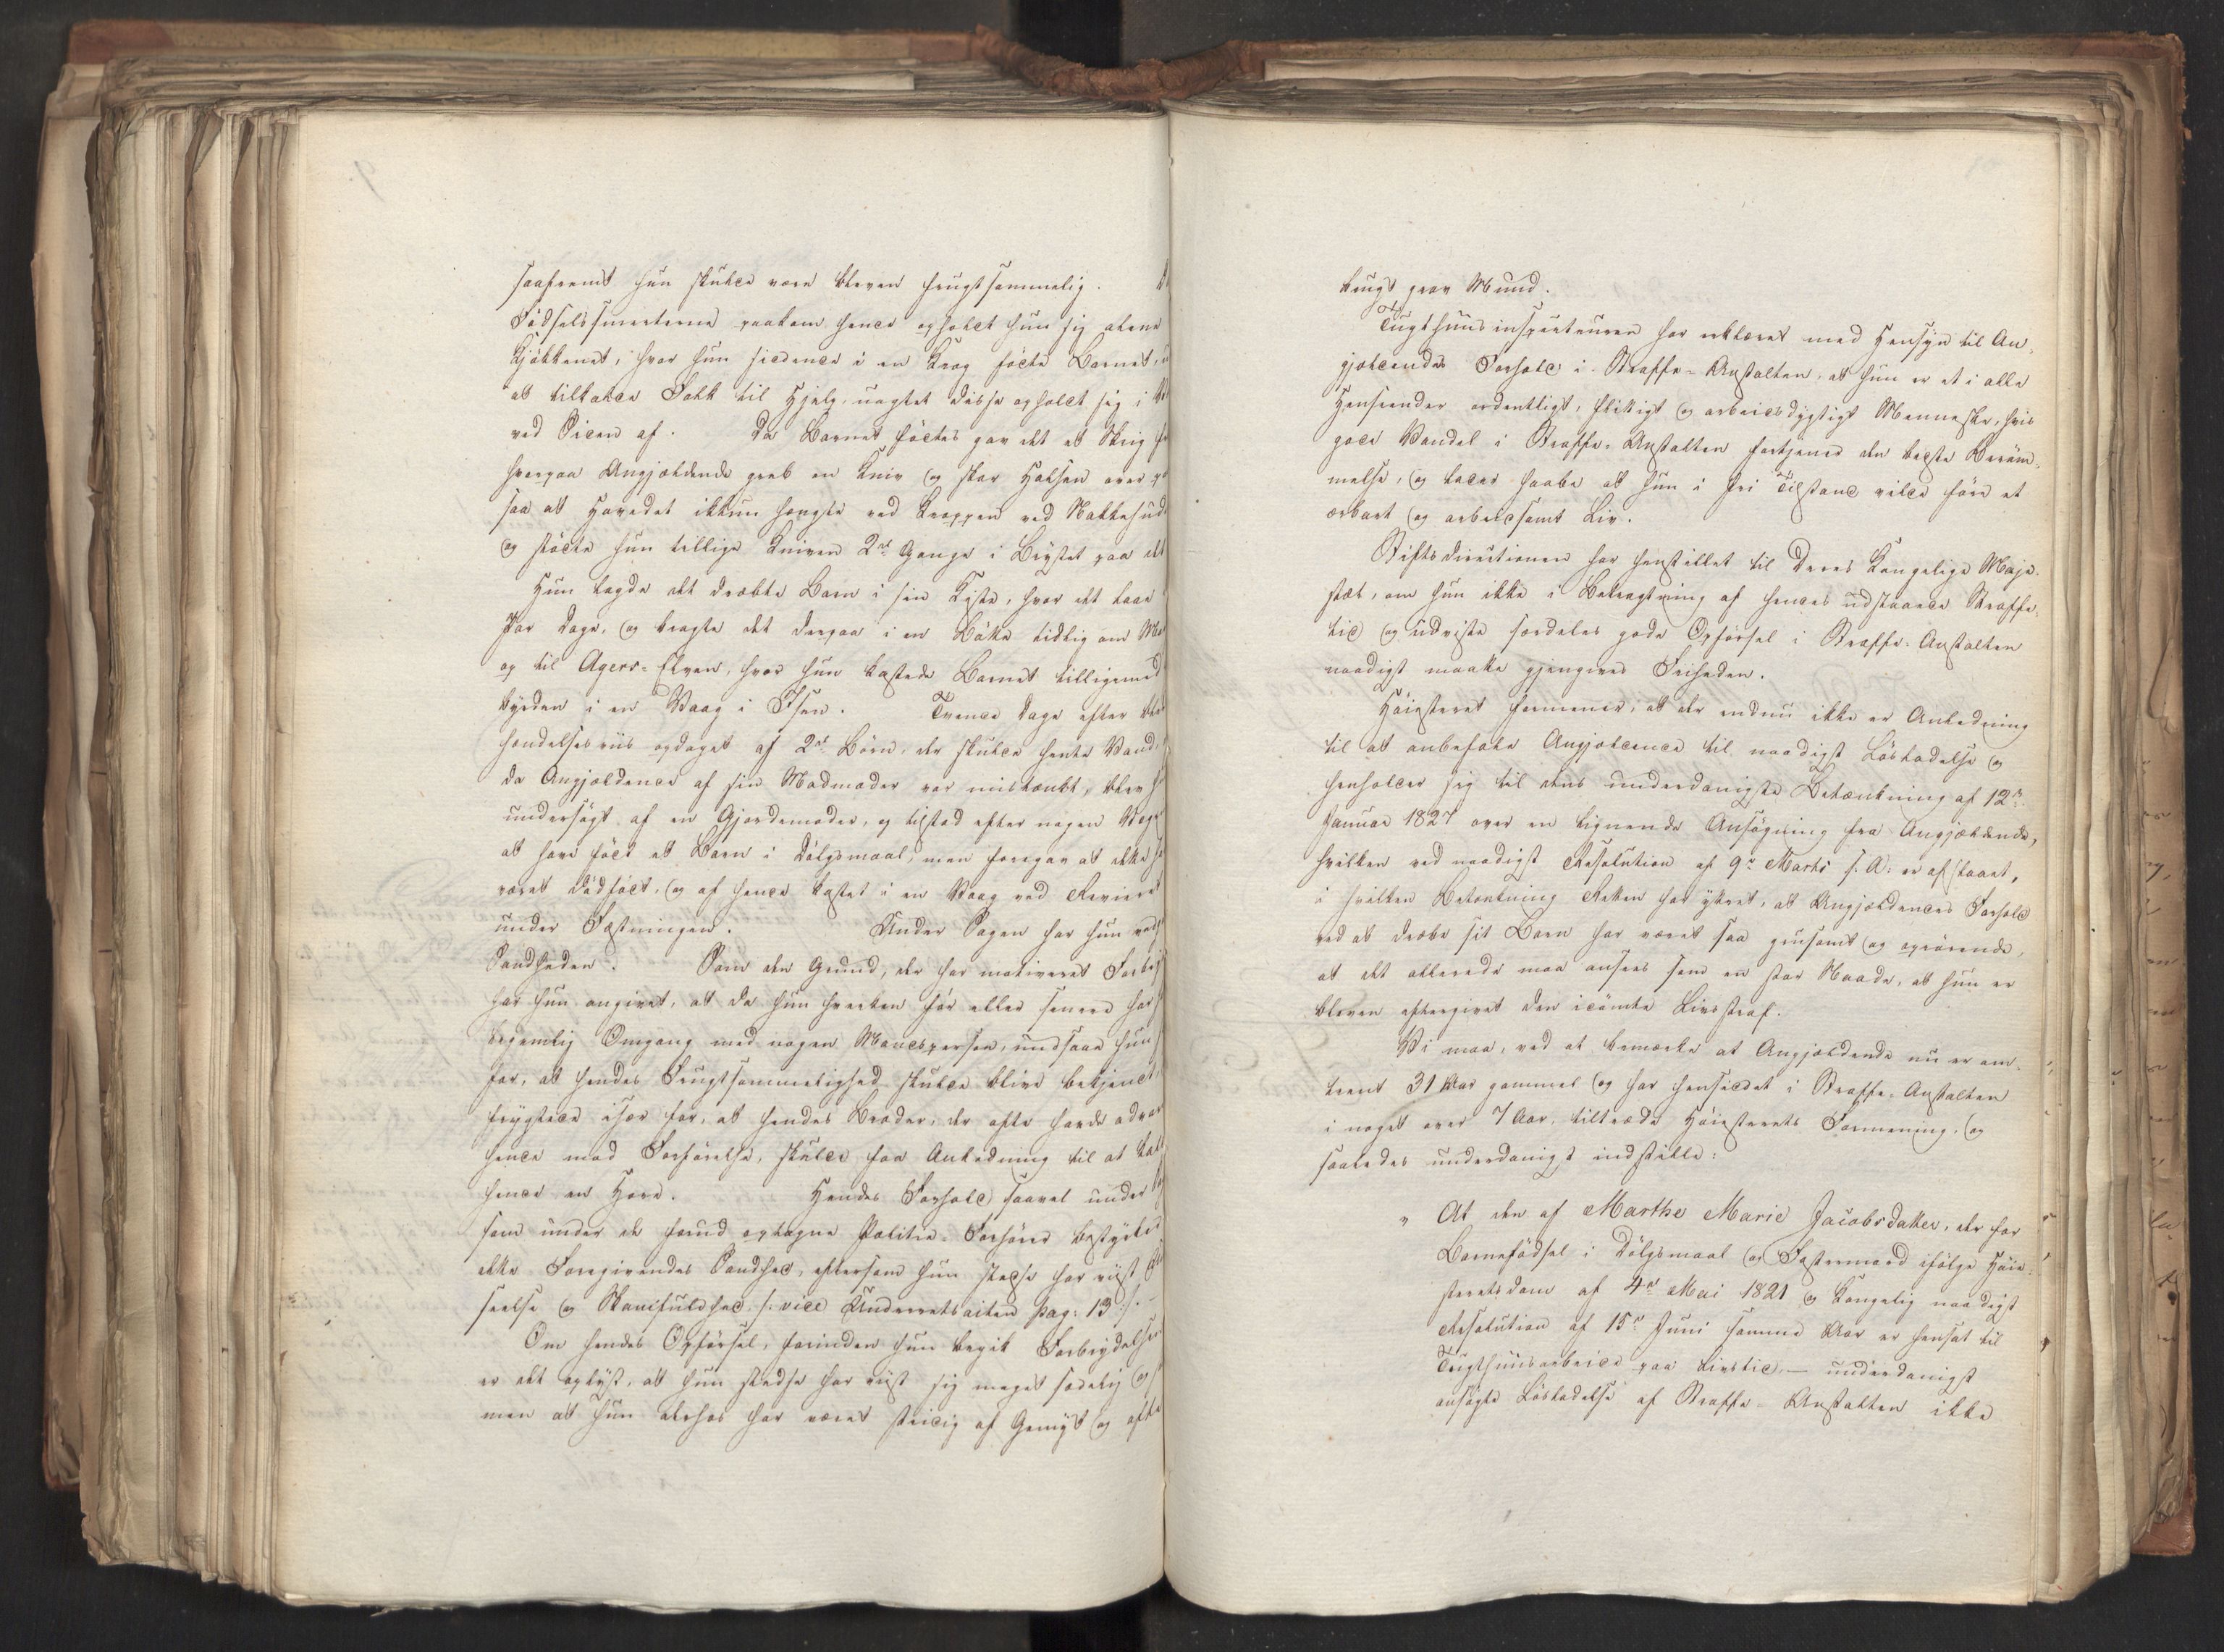 saafremt hun skulde være bleven frugtsommelig.
Födselssmerterne paakom hende opholdt hun sig alene
Kjökkenet, hvor hun siddende i en Krog födte Barnet,
at tilkalde Folk til Hjelp, uagtet disse opholdt sig i
ved Siden af. Da Barnet födtes gav det et Skrig
hvorpaa Angjældende greb en Kniv og skar Halsen over
saa at Hovedet ikkun hængte ved Kroppen ved Nakkehud
og stödte hun tillige Kniven 2de Gange i Brystet paa det
Hun lagde det dræbte Barn i sin Kiste, hvor det laae
Par Dage, og bragte det derpaa i en Bötte tidlig om
op til Agers-Elven, hvor hun kastede Barnet tilligemed
byrden i en Vaag i Isen. Tvende Dage efter blev
hændelsesviis opdaget af 2de Börn, der skulde hente Vand,
da Angjeldende af sin Madmoder var mistænkt, blev
undersögt af en Gjordemoder, og tilstod efter nogen
at have föd et Barn i Dölgsmaal, men foregav at dette
været dödföd, og af hende kastet i en Vaag ved Revieret
under Fæstningen. Under Sagen har hun
Sandheden. Som den Grund, der har motiveret
har hun angivet, at da hun hverken för eller senere har
legemlig Omgang med nogen Mandsperson, undsaae hun
for, at hendes Frugtsommelighed skulde blive bekjendt
frygtede især for, at hendes Broder, der ofte havde
hende mod Forförelse, skulde faae Anledning til at
hende en Hore. Hendes Forhold saavel under
som under de forud optagne Politie-Forhörer bestyrke
dette Foregivendes Sandhed, eftersom hun stedse har viist
seelse og Skamfuldhed /: vide Underretsakten pag: 13 :/. -
Om hendes Opförsel, forinden hun begik Forbrydelsen
er det oplyst, at hun stedse har viist sig meget sædelig og
men at hun derhos har været stridig af Gemyt og ofte
brugt grov Mund.
Tugthuusinspecteuren har erklæret med Hensyn til An-
gjældendes Forhold i Straffe-Anstalten, at hun er et i alle
Henseender ordentligt, flittigt og arbeidsdygtigt Menneske, hvis
gode Vandel i Straffe-Anstalten fortjener den bedste Beröm-
melse, og lader haabe at hun i fri Tilstand vilde före et
ærbart og arbeidsomt Liv.
Stiftsdirectionen har henstillet til Deres Kongelige Maje-
stæt, om hun ikke i Betragtning af hendes udstaaede Straffe-
tid og udviste særdeles gode Opförsel i Straffe-Anstalten
naadigst maatte gjengives Friheden.
Höiesteret formener, at der endnu ikke er Anledning
til at anbefale Angjældende til naadigst Löslædelse og
henholder sig til dens underdanigste Betænkning af 12te
Januar 1827 over en lignende Ansögning fra Angjældende,
hvilken ved naadigst Resolution af 9de Marts s. A. er afslaaet,
i hvilken Betænkning Retten har yttret, at Angjældendes Forhold
ved at dræbe sit Barn har været saa grusomt og oprörende,
at det allerede maa ansees som en stor Naade, at hun er
bleven eftergivet den idömte Livsstraf.
Vi maa, ved at bemærke at Angjældende nu er om-
trent 31 Aar gammel og har hensiddet i Straffe-Anstalten
i noget over 7 Aar, tiltræde Höiesterets Formening, og
saaledes underdanigst indstille:
" At den af Marthe Marie Jacobsdatter, der for
Barnefödsel i Dölgsmaal og Fostermord ifölge Höie-
steretsdom af 4de Mai 1821 og Kongelig naadigst
Resolution af 15de Juni samme Aar er hensat til
Tugthuusarbeide paa Livstid, - underdanigst
ansögte Löslædelse af Straffe-Anstalten ikke